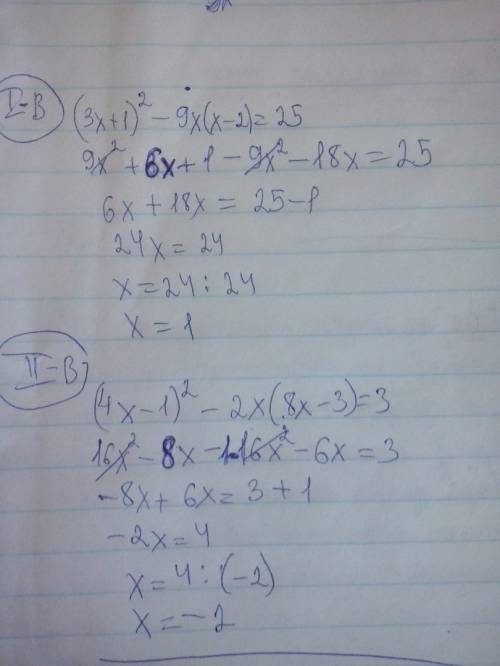 I-В (3x+1)² - 9x(x-2)=25
9x² + 6x + 1 - 9x² - 18x = 25
6x + 18x = 25-1
24x = 24
x = 24 : 24
x = 1
II-В
(4x-1)² - 2x(8x-3)=3
16x² - 8x - 1-16x² - 6x = 3
-8x + 6x = 3 + 1
-2x = 4
x = 4 : (-2)
x = -2